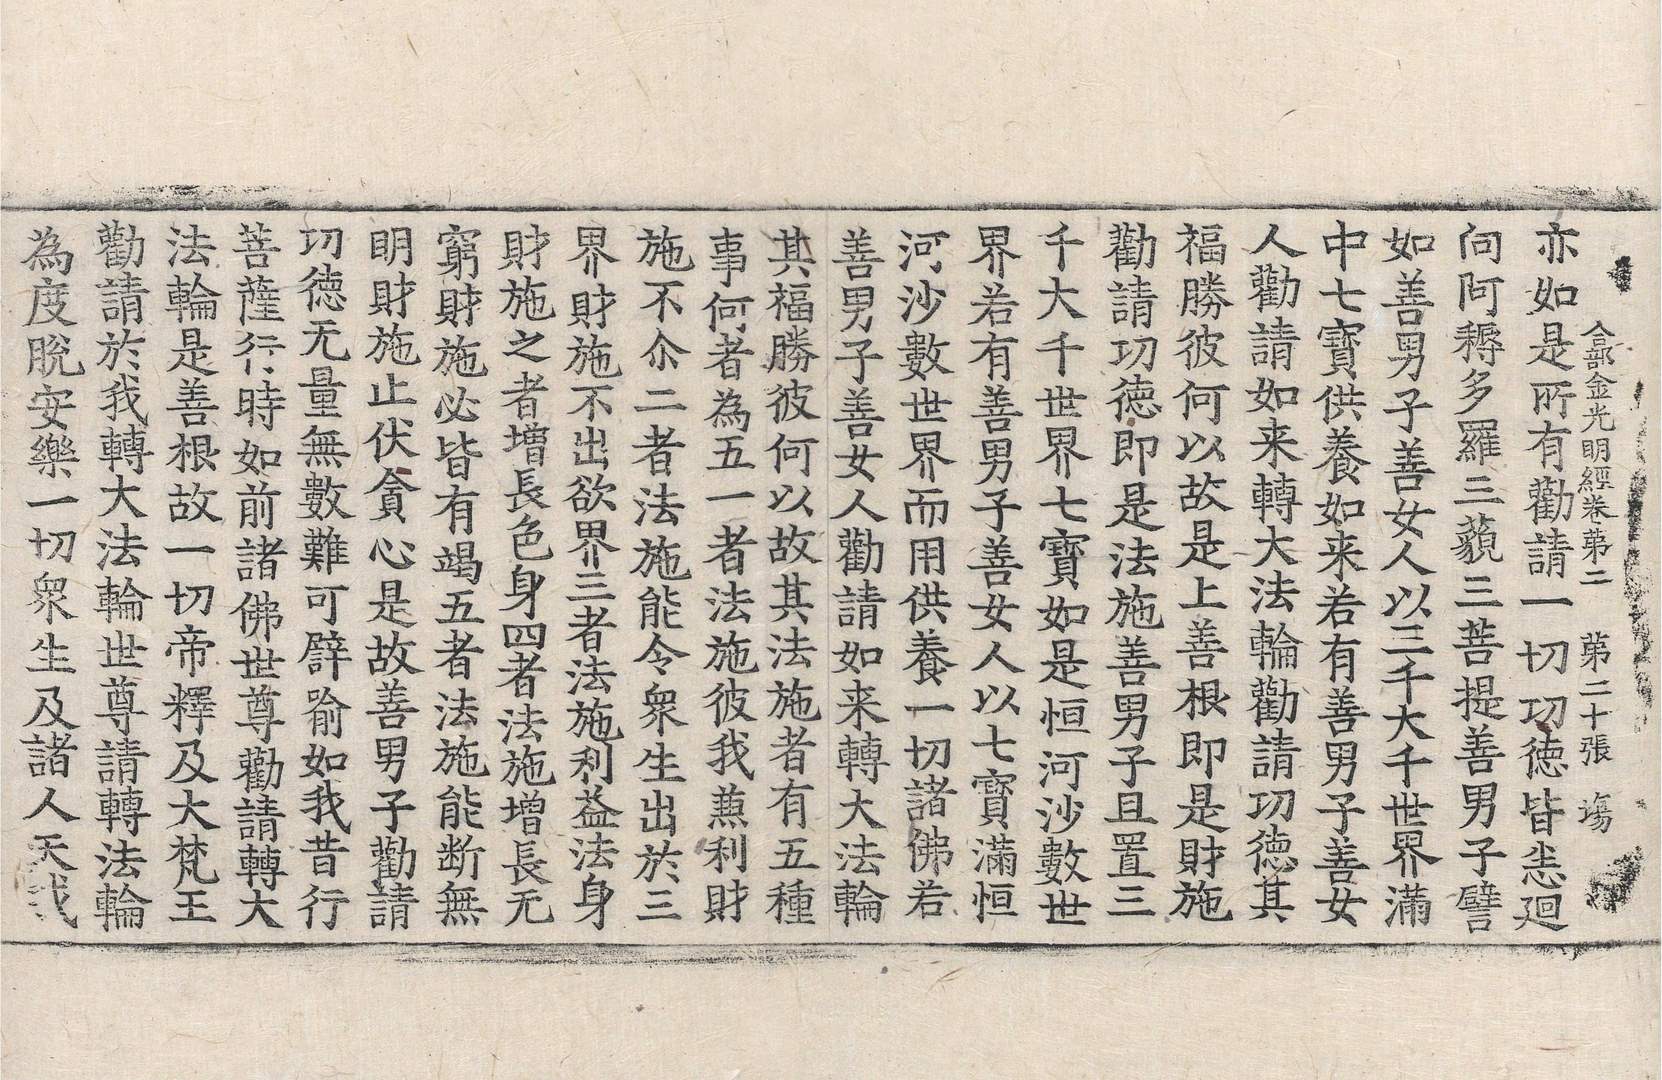 合部金光明經卷第二　第二十張　塲
亦如是所有勸請一切功德皆悉迴
向阿耨多羅三藐三菩提善男子譬
如善男子善女人以三千大千世界滿
中七寶供養如来若有善男子善女
人勸請如来轉大法輪勸請功德其
福勝彼何以故是上善根即是財施
勸請功德即是法施善男子且置三
千大千世界七寶如是恒河沙數世
界若有善男子善女人以七寶滿恒
河沙數世界而用供養一切諸佛若
善男子善女人勸請如来轉大法輪
其福勝彼何以故其法施者有五種
事何者為五一者法施彼我蕉利財
施不尒二者法施能令衆生出於三
界財施不出欲界三者法施利益法身
財施之者增長色身四者法施增長无
窮財施必皆有竭五者法施能断無
明財施止伏貪心是故善男子勸請
功德无量無數難可譬喻如我昔行
菩薩行時如前諸佛世尊勸請轉大
法輪是善根故一切帝釋及大梵王
勸請於我轉大法輪世尊請轉法輪
為度脫安樂一切衆生及諸人天我